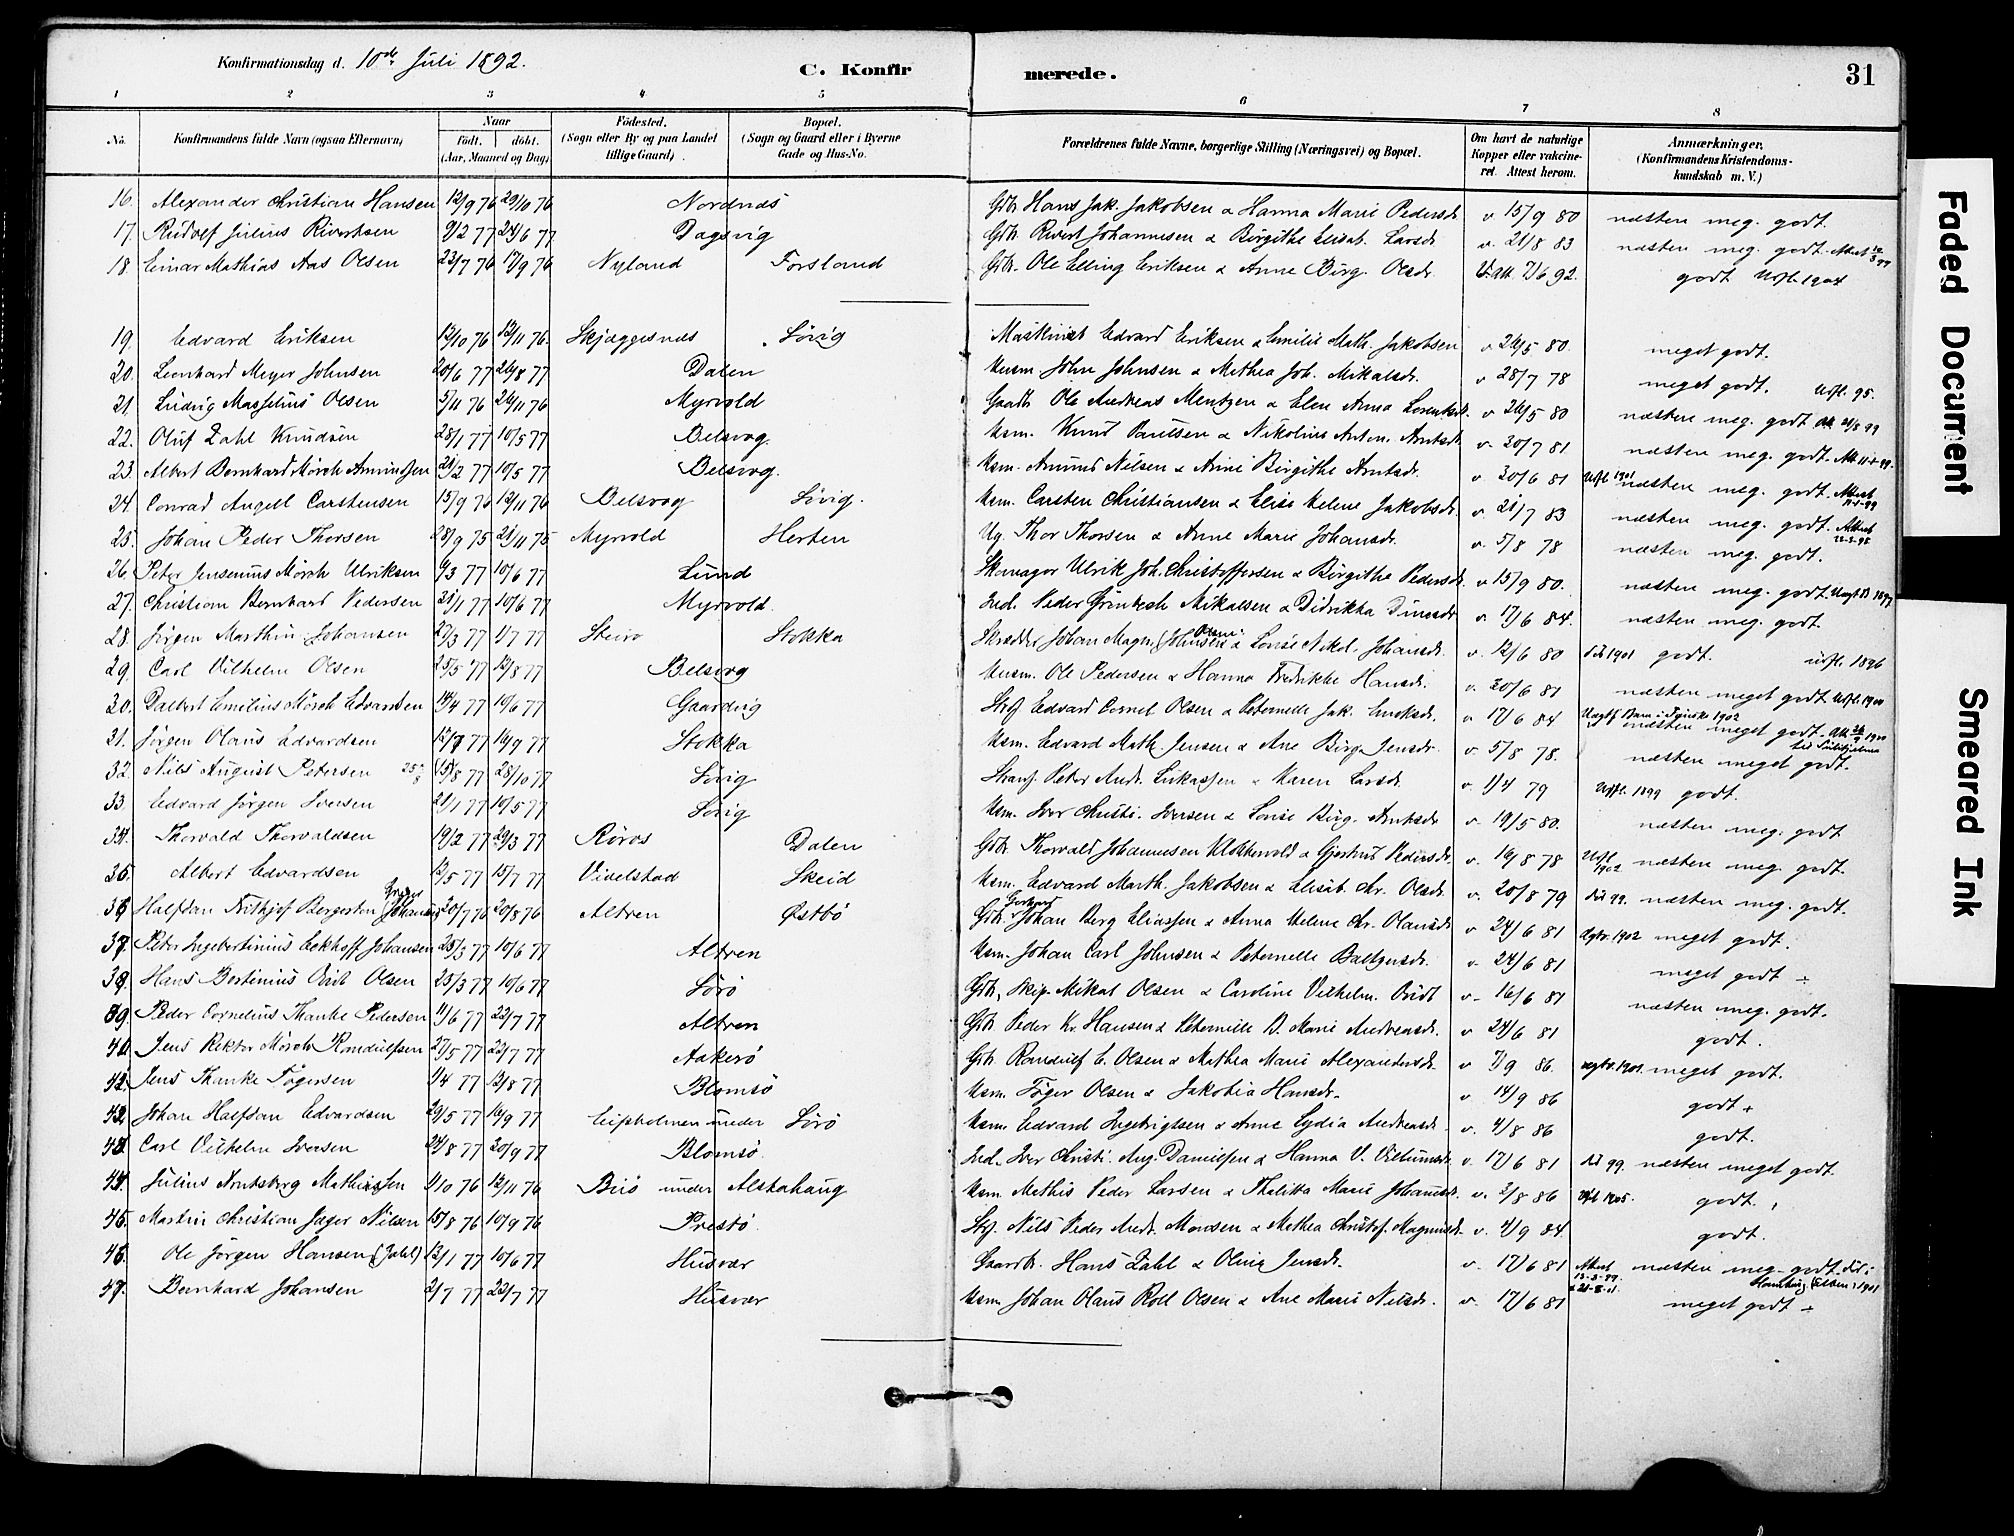 Konfirmationsdag d. 10de Juli 1892.
C. Konfirmerede.
31
1 2 3 4 5 6 7 8
No. Konfirmandens fulde Navn (ogsaa Efternavn) Naar födt. döbt. (Aar, Maaned og Dag) Födested. (Sogn eller By og paa Landet tillige Gaard) Bopæl. (Sogn og Gaard eller i Byerne Gade og Hus-No. Forældrenes fulde Navne, borgerlige Stilling (Næringsvei) og Bopæl. Om havt de naturlige Kopper eller vakcineret. Attest herom. Anmærkninger. (Konfirmandens Kristendomskundskab m. V.)
16. Alexander Christian Hansen 12/9 76 29/10 76 Nordnæs Gbr. Hans Jak. Jakobsen & Hanna Marie Pedersdr. v 15/9 80 næsten meg. godt.
17. Rudolf Julius Rivertsen 9/2 77 24/6 77 Dagsvig Gbr. Rivert Johannesen & Birgithe Elisab. Larsdr. v. 21/8 83 næsten meg. godt.
18. Einar Mathias Aas Olsen 23/7 76 17/9 76 Nyland Forsland Gbr. Ole Elling Eriksen & Anne Birg. Olsdr. 7/6 92. godt Utfl. 1904
19. Edvard Eriksen 13/10 76 12/11 76. Skjæggesnæs Sövig Maskinist Edvard Eriksen & Emilie Math. Jakobsen v 26/5 80. meget godt.
20. Leonhard Meyer Johnsen 20/6 77 26/8 77 Dalen Husm. John Johnsen & Mathea Joh. Mikalsdr. v 28/7 78 meget godt. Utfl. 95.
21. Ludvig Masselius Olsen 5/11 76 26/11 76 Myrvold Ole Andreas Mentzen & Elen Anna Lorentsdr. v 26/5 80 næsten meg. godt
22. Oluf Zahl Knudsen 28/1 77 10/5 77 Belsvog Husm. Knud Paulsen & Nikoline Anton. Arntsdr. v. 20/7 81 næsten meg. godt.
23. Albert Bernhard Mörch Amundsen 21/2 77 10/5 77 Belsvog. Husm. Amund Nilsen & Anne Birgithe Arntsdr. v. 20/6 81 Utfl. 1901 næsten meg. godt.
24. Conrad Angell Carstensen 15/9 76 12/11 76 Belsvog Sövig. Husm. Carsten Christiansen & Elise Helene Jakobsdr. v. 21/7 83 næsten meg. godt.
25. Johan Peder Thorsen 28/9 75 21/11 75 Myrvold Herten Ug. Thor Thorsen & Anne Marie Johansdr. v. 5/8 78 næsten meg. godt.
26. Peter Jensenius Mörch Ulriksen 9/3 77 10/6 77 Lund Ulrik Joh. Christoffersen & Birgithe Pedersdr. v 15/9 80. næsten meg. godt.
27. Christian Bernhard Pedersen 21/1 77 10/6 77 Myrvold. Ind. Peder Mikalsen & Didrikka v. 17/6 84. næsten meg. godt.
28. Jörgen Marthin Johansen 27/3 77 1/7 77 Steiro Stokka Skredder Johan Magn. Johansen & Lovise Nikol. Johansdr. v. 12/6 80 1901 godt. utfl. 1896
29. Carl Vilhelm Olsen 25/5 77 12/8 77 Belsvog Husm. Ole Pedersen & Hanna Fredrikke Hansdr. v. 20/6 81 næsten meget godt Utfl. 1900
30. Dalbert Emilius Mörch Edvardsen 14/4 77 10/6 77 Gaardvig Edvard Cornel. Olsen & Peternelle Jak. v 17/6 84 næsten meget godt.
31. Jörgen Olaus Edvardsen 12/7 77 16/9 77 Stokka Husm. Edvard Math. Jensen & Ane Birg. Jensdr. v. 5/8 78. næsten meget godt.
32. Nils August Petersen 15/8 77 28/10 77 Sövig Peter Andr. Lukassen & Karen Larsdr. v. 1/4 79 Utfl. 1899 godt.
33. Edvard Jörgen Iversen 21/1 77 10/5 77 Sövig Husm. Iver Christi. Iversen & Lovise Birg. Arntsdr v. 19/5 80. næsten meg. godt.
34. Thorvald Thorvaldsen 19/2 77 29/3 77 Röros Dalen Gbr. Thorvald Johannesen & Gjertrud Pedersdr. v. 16/8 78 Utfl. 1902 næsten meg. godt.
35. Albert Edvardsen 13/5 77 15/7 77 Vivelstad Skeid Husm. Edvard Marth. Jakobsen & Elisab. Chr. Olsdr v. 20/8 79 99. næsten meg. godt.
36 Halfdan Frithjof Bergersen (Johansen) 20/7 76 20/8 76 Altren Østbö Gbr. Johan Berg Eliassen & Anna Helene Chr. Olausdr v 24/6 81 1902 meget godt.
37. Peter Ingebertinius Eekhoff Johansen 25/3 77 10/6 77 Altren Husm. Johan Carl Johnsen & Peternelle Baltzersdr. v. 24/6 81 meget godt
38. Hans Bertinius Olsen 23/3 77 10/6 77 Sörö Gbr, Skip. Mikal Olsen & Caroline Vilhelm. v- 16/6 81 næsten meg. godt.
39. Peder Cornelius Thanke Pedersen 11/6 77 22/7 77 Altren Gbr. Peder Kr. Hansen & Peternille D. Marie Andreasdr. v 24/6 81 godt.
40. Jens Rektor Mörch Romdulfsen 27/5 77 22/7 77 Aakerö Gbr. Romdulf E. Olsen & Mathea Marie Alexandersdr. v 7/9 86. 1901. meget godt.
42. Jens Thanke Tögersen 1/4 77 12/8 77 Blomsö Husm. Töger Olsen & Jakobia Hansdr. v 14/9 86 godt +
42. Johan Halfdan Edvardsen 29/5 77 16/9 77 under Sörö Husm. Edvard Ingebrigtsen & Anne Lydia Andreasdr. v. 4/8 86 godt.
43. Carl Vilhelm Iversen 24/8 77 20/9 77 Blomsö. Ind. Iver Christi. Aug. Danielsen & Hanna V. v. 17/6 81 99. næsten meget godt
44. Julius Arntsberg Mathissen 1/10 76 12/11 76 Biö under Alstahaug Husm. Mathis Peder Larsen & Thalitta Marie Johansdr. v. 3/8 86 Utfl 1905. godt.
45. Martin Christian Jager Nilsen 15/8 76 10/9 76 Prestö. Nils Peder Andr. Monsen & Mathea Christof. Magnusdr. v. 4/9 84. godt.
46. Ole Jörgen Hansen (Zahl) 12/1 77 10/6 77 Husvær Gaardbr. Hans Zahl & Oline Jensdr. v. 17/6 81 næsten meg. godt.
47. Bernhard Johansen 2/7 77 22/7 77 Husvær Husm. Johan Olaus Roll Olsen & Ane Marie Nilsdr. v. 17/6 81 meget godt
Faded Document
Smeared Ink